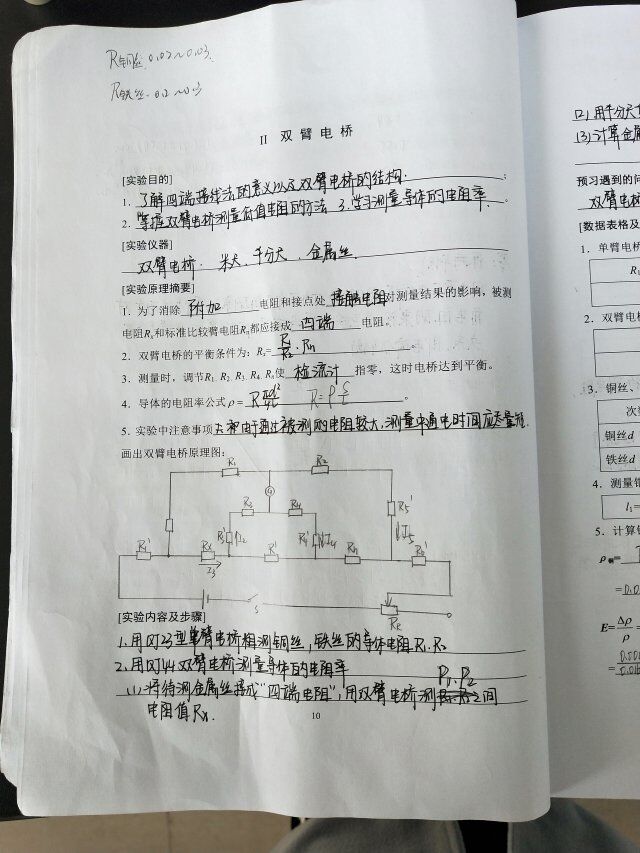 R铜丝: 0.02~0.03.
R铁丝. 0.2~0.3
II 双 臂 电 桥
[实验目的]
1. 了解四端接线法的意义以及双臂电桥的结构. ;
2. 掌握双臂电桥测量低值电阻的方法 3. 学习测量导体的电阻率 。
[实验仪器]
双臂电桥. 米尺、千分尺、金属丝.
[实验原理摘要]
1. 为了消除 附加 电阻和接点处 接触电阻 对测量结果的影响，被测
电阻Rx和标准比较臂电阻Rn都应接成 四端 电阻。
2. 双臂电桥的平衡条件为：Rx= R1/R2 · Rn
3. 测量时，调节R1, R2, R3, R4, Rn使 检流计 指零，这时电桥达到平衡。
4. 导体的电阻率公式ρ= R πd²/4L R=ρ L/S 。
5. 实验中注意事项 由于通过被测的电阻较大,测量中通电时间应尽量短
画出双臂电桥原理图:
R1 R2
G
R3 R4
R5'
R1' Rx R' Rn
S
[实验内容及步骤]
1. 用QJ23型单臂电桥粗测铜丝, 铁丝的导体电阻R1. R2
2. 用QJ44双臂电桥测量导体的电阻率
(1) 将待测金属丝接成“四端电阻”, 用双臂电桥测 P1. P2 之间
电阻值Rx.
10
(2) 用千分尺
(3) 计算金属
预习遇到的问
双臂电桥
[数据表格及
1. 单臂电桥
2. 双臂电桥
3. 铜丝、
次
铜丝d
铁丝d
4. 测量铜
l1=
5. 计算铜
ρ铜=
E= Δρ/ρ =